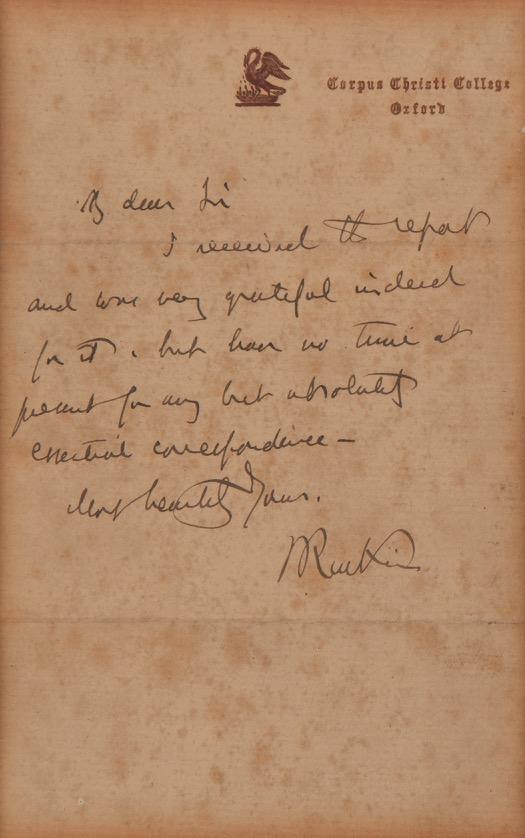 Corpus Christi College
Oxford
My dear Sir
I received the report
and was very grateful indeed
for it, but have no time at
present for any but absolutely
essential correspondence –
Most heartily Yours.
JRuskin